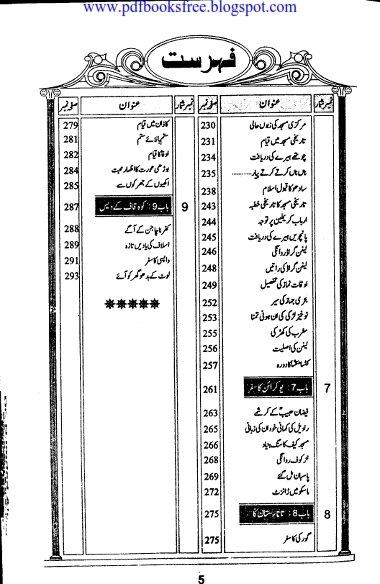 www.pdfbooksfree.blogspot.com
فہرست
نمبر شمار عنوان صفحہ نمبر
مرکزی مسجد کی زبوں حالی 230
تاریخی مسجد میں قیام 231
چوتھے ہیرے کی دریافت 234
ہاں ہاں کرتے کرتے پیار..... 235
سادھو کا قبول اسلام 238
تاریخی مسجد کا تاریخی خطبہ 243
ارباب کریملین پر توجہ 244
پانچویں ہیرے کی دریافت 245
لینن گراڈ روانگی 246
لینن گراڈ کی راتیں 248
اوقات نماز کی تفصیل 249
بحری جہاز کی سیر 252
نوخیز لڑکی کی ان ہونی تمنا 253
مغرب کی کھڑکی 255
لینن کی اصلیت 256
کا دورہ 257
7 باب 7: یوکرائن کا سفر 261
فیضان حبیب کے کرشمے 263
راویل کی کہانی خود ان کی زبانی 265
مسجد کیف کا سنگ بنیاد 266
خرکوف روانگی 268
پاسبان مل گئے 269
ماسکو میں ٹرانزٹ 272
8 باب 8: تاتارستان کا 275
گورکی کا سفر 275
نمبر شمار عنوان صفحہ نمبر
کازان میں قیام 279
ستم بالائے ستم 281
اوفا کا قیام 282
بوڑھی عورت کا اظہار محبت 284
انکھیوں کے جھرکوں سے 285
9 باب 9: کوہ قاف کے دیس 287
کفر ناچا جن کے آگے 288
اسلاف کی یادیں تازہ 289
واپسی کا سفر 291
لوٹ کے بدھو گھر کو آئے 293
*****
5